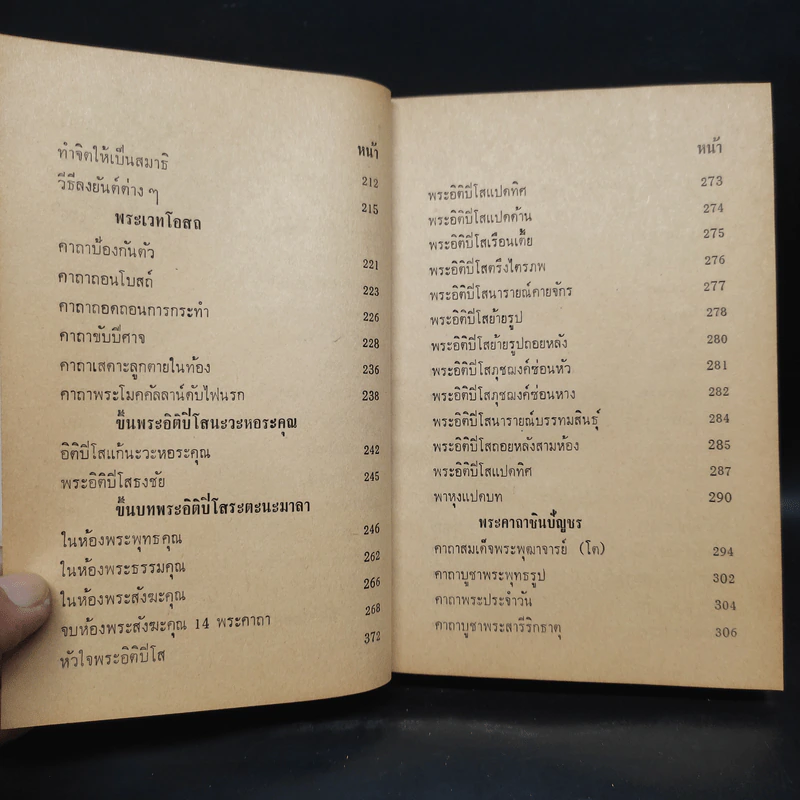 หน้า
ทำจิตให้เป็นสมาธิ 212
วีธีลงยันต์ต่าง ๆ 215
พระเวทโอสถ
คาถาป้องกันตัว 221
คาถาถอนโบสถ์ 223
คาถาถอดถอนการกระทำ 226
คาถาขับปีศาจ 228
คาถาเสดาะลูกตายในท้อง 236
คาถาพระโมคคัลลาน์ดับไฟนรก 238
ขึ้นพระอิติปิโสนะวะหอระคุณ
อิติปิโสแก้นะวะหอระคุณ 242
พระอิติปิโสธงชัย 245
ขึ้นบทพระอิติปิโสระตะนะมาลา
ในห้องพระพุทธคุณ 246
ในห้องพระธรรมคุณ 262
ในห้องพระสังฆะคุณ 266
จบห้องพระสังฆะคุณ 14 พระคาถา 268
หัวใจพระอิติปิโส 372
หน้า
พระอิติปิโสแปดทิศ 273
พระอิติปิโสแปดด้าน 274
พระอิติปิโสเรือนเตี้ย 275
พระอิติปิโสตรึงไตรภพ 276
พระอิติปิโสนารายณ์คายจักร 277
พระอิติปิโสย้ายรูป 278
พระอิติปิโสย้ายรูปถอยหลัง 280
พระอิติปิโสภุชฌงค์ซ่อนหัว 281
พระอิติปิโสภุชฌงค์ซ่อนหาง 282
พระอิติปิโสนารายณ์บรรทมสินธุ์ 284
พระอิติปิโสถอยหลังสามห้อง 285
พระอิติปิโสแปดทิศ 287
พาหุงแปดบท 290
พระคาถาชินบัญชร
คาถาสมเด็จพระพุฒาจารย์ (โต) 294
คาถาบูชาพระพุทธรูป 302
คาถาพระประจำวัน 304
คาถาบูชาพระสารีริกธาตุ 306